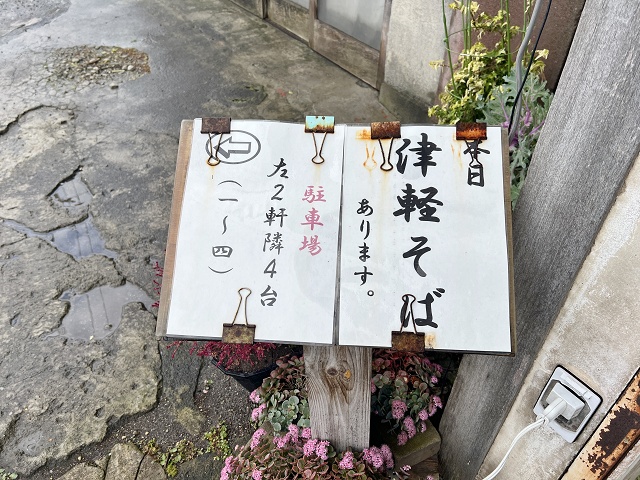 本日
津軽そば
あります。
駐車場
左2軒隣4台
(一〜四)